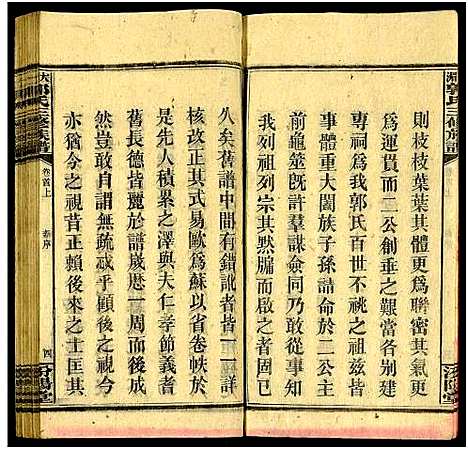 則枝枝葉葉其體更爲聯密其氣更
爲運貫而二公創垂之艱當各別建
專祠爲我郭氏百世不祧之祖顧茲
事體重大闔族子孫請命於二公主
前龜筮既許羣謀僉同乃敢敬要於
我列祖列宗其默牖而啟之者固已
久矣舊譜中間有錯訛者皆一一詳
核改正其式易歐爲蘇以省卷帙於
是先人積累之澤與夫仁孝節義者
舊長德皆麗於譜歲愿一周而後成
然豈敢自謂無疏紕乎顧後之視今
亦猶今之視昔正賴後來之士匡其
郭氏三修族譜
卷首上
序
四
汾陽堂